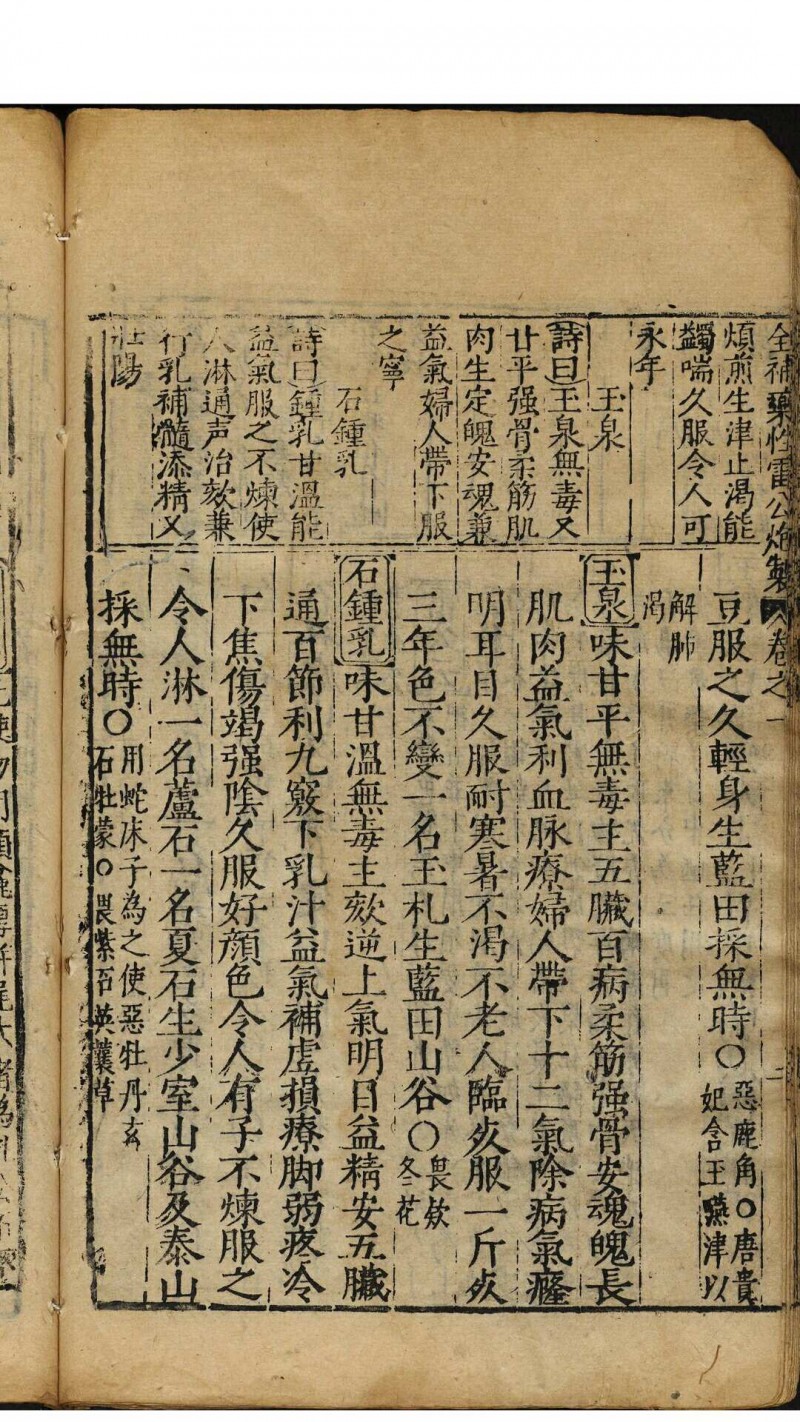 全補藥性雷公炮製卷之一
煩煎生津止渴能
蠲喘久服令人可
永年
玉泉
詩曰玉泉無毒又
甘平强骨柔筋肌
肉生定魄安魂兼
益氣婦人帶下服
之寧
石鍾乳
詩曰鍾乳甘溫能
益氣服之不煉使
人淋通声治欬兼
行乳補髓添精又
壯陽
豆服之久輕身生藍田採無時〇惡鹿角〇唐貴
妃含玉嚥津以
解肺
渴
玉泉味甘平無毒主五臟百病柔筋强骨安魂魄長
肌肉益氣利血脉療婦人帶下十二氣除病氣癃
明耳目久服耐寒暑不渴不老人臨死服一斤死
三年色不變一名玉札生藍田山谷〇畏欵
冬花
石鍾乳味甘溫無毒主欬逆上氣明目益精安五臟
通百節利九竅下乳汁益氣補虚損療脚弱疼冷
下焦傷竭强陰久服好顔色令人有子不煉服之
令人淋一名蘆石一名夏石生少室山谷及泰山
採無時〇用蛇床子為之使惡牡丹玄
石牡蒙〇畏紫石英蘘草